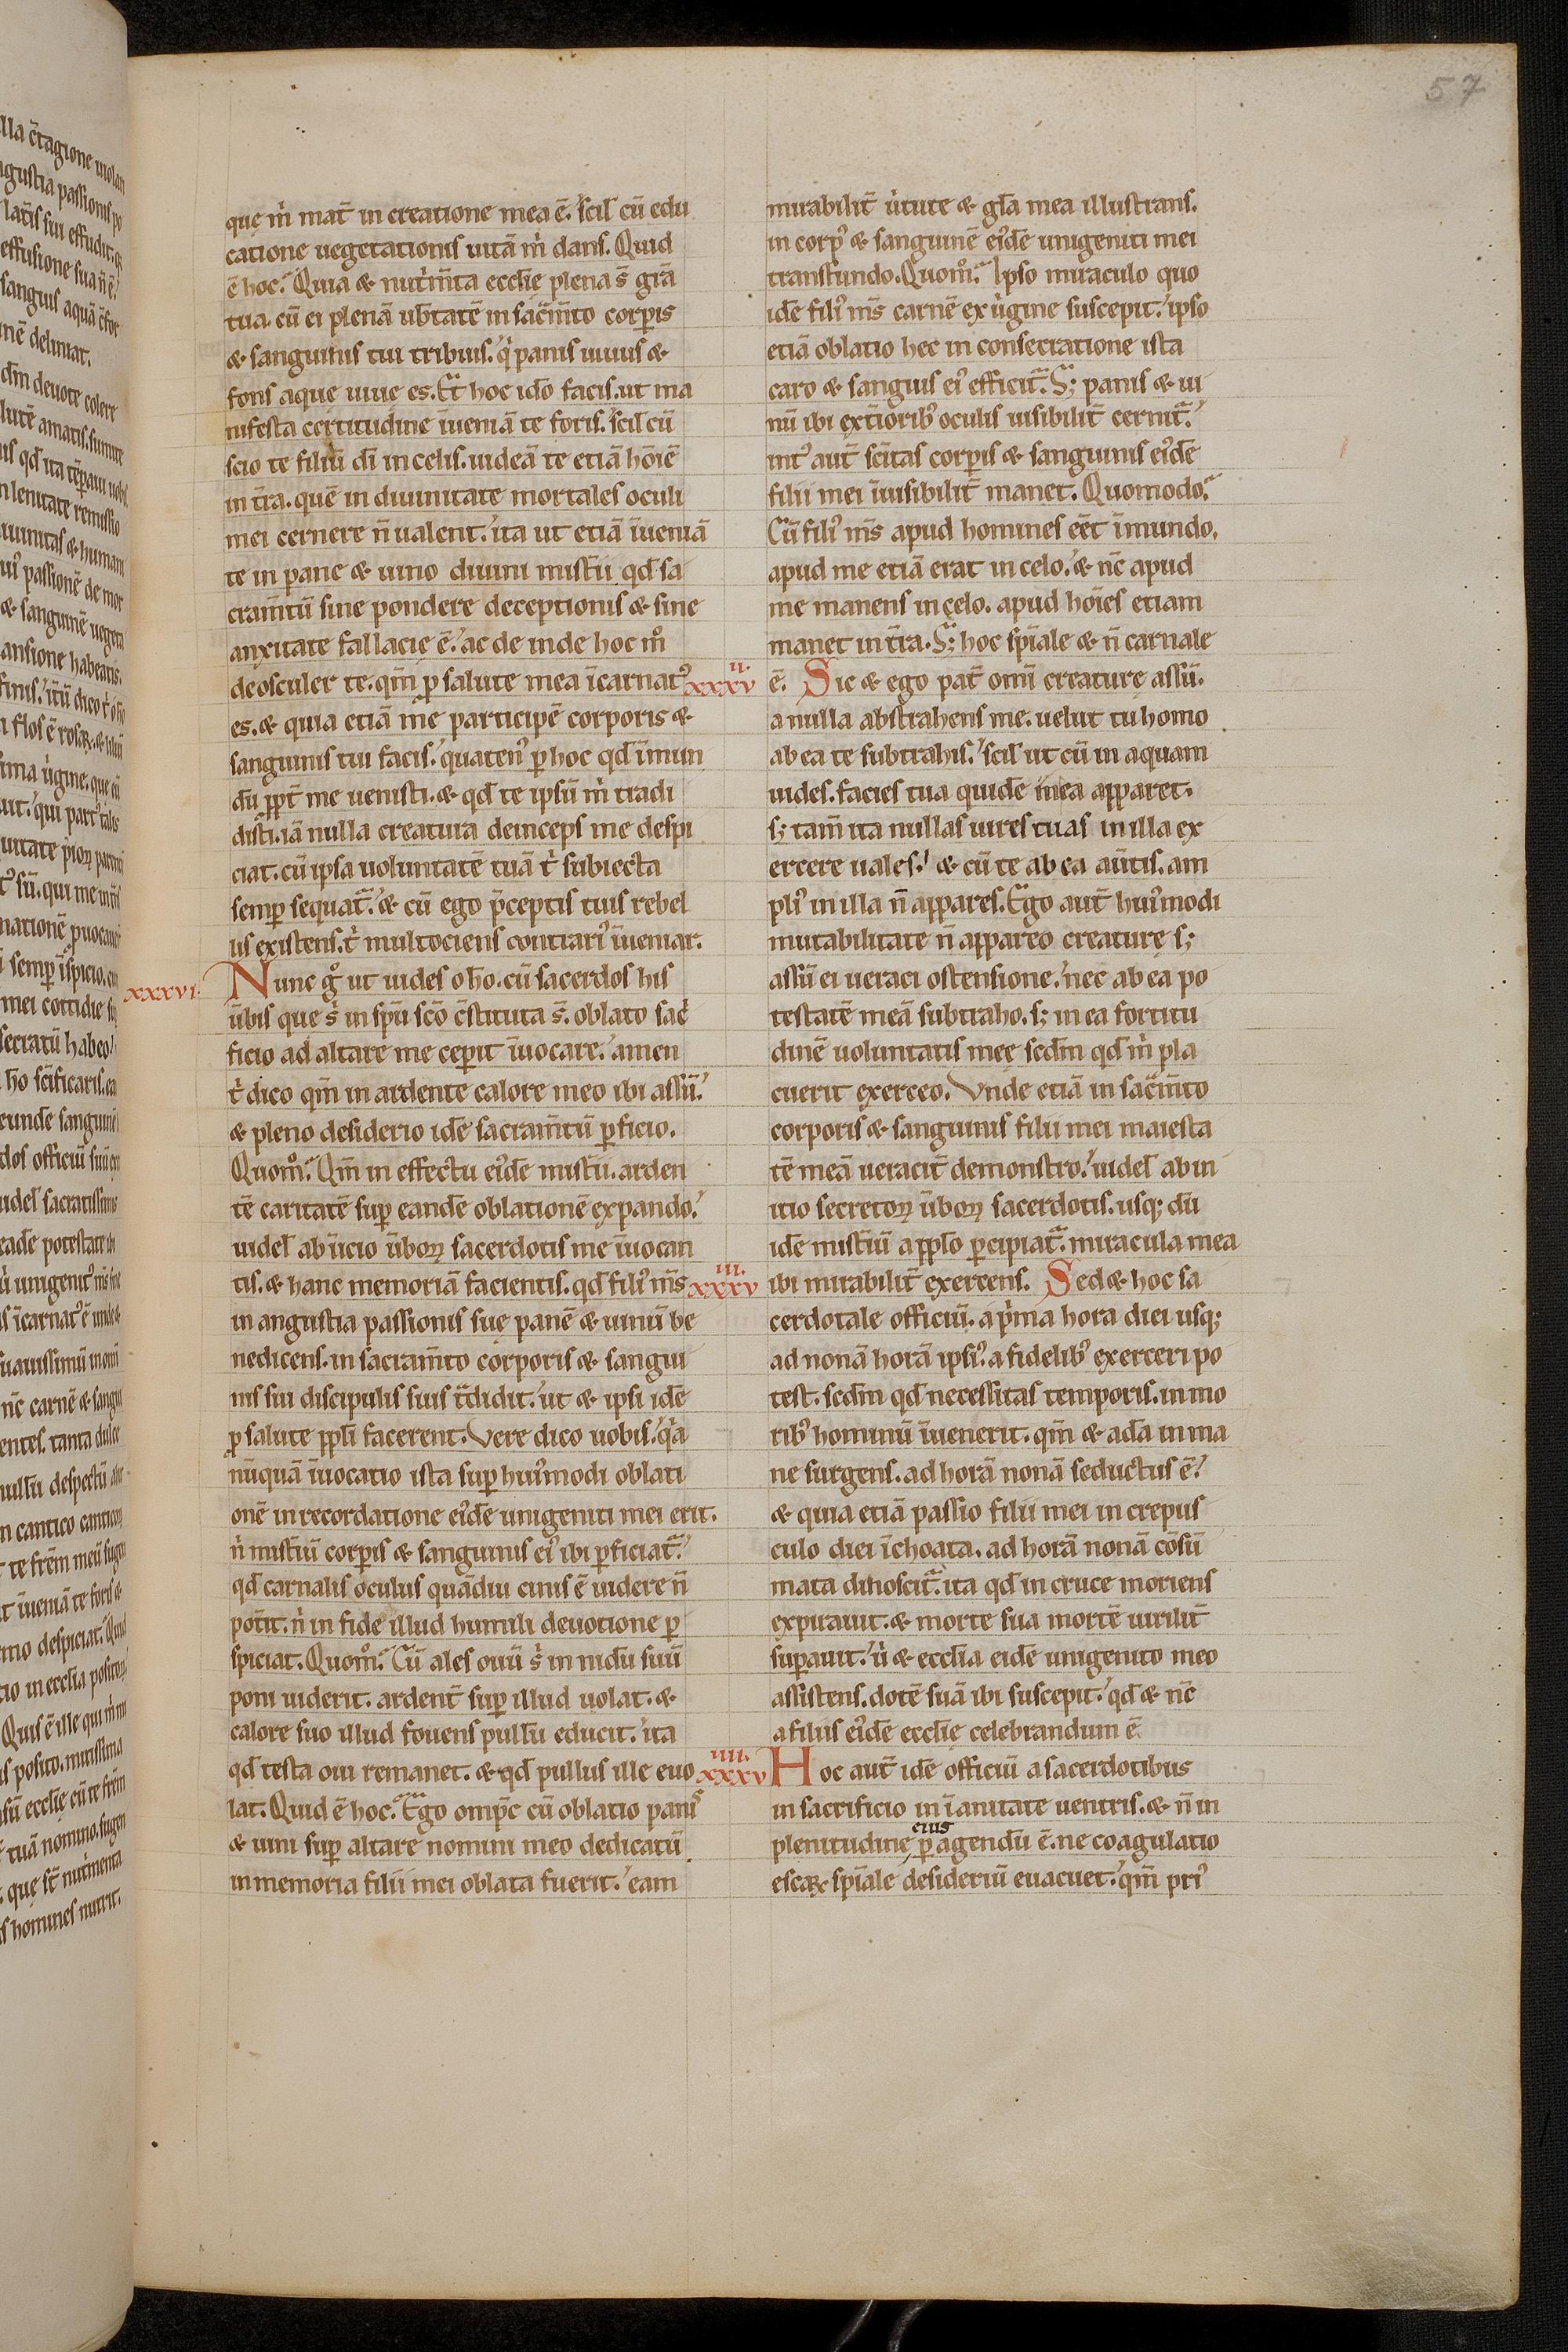 57
que m̉ mat̄ in creatione mea ē. scil̉ cū edu
catione uegetationis uitā m̉ dans. Quid
ē hoc? Quia & nut̉m̄ta eccl̄ie plena s̄ gr̄a
tua. cū ei plenā ub̄tatē in sac̄m̄to corp̲is
& sanguinis tui tribuis. q̉ panis uiuus &
fons aque uiue es. Et hoc ido facis. ut ma
nifesta certitudine īueniā te foris. scil̉ cū
scio te filiū dī in celis. uideā te etiā hōiē
in t̄ra. quē in diuinitate mortales oculi
mei cernere n̄ ualent. ita ut etiā īueniā
te in pane & uino diuini mist̄ii qd̄ sa
cram̄tū sine pondere deceptionis & sine
anxitate fallacie ē. ac de inde hoc m̊
deosculer te. qm̄ p̲ salute mea īcarnat᾿
es. & quia etiā me participē corporis &
sanguinis tui facis. quaten᾿ p̲ hoc qd̄ ī mun
dū pp̄t me uenisti. & qd̄ te ipsū m̉ tradi
disti. iā nulla creatura deinceps me despi
ciat. cū ipsa uoluntatē tuā t̉ subiecta
semp̲ sequat᾿. & cū ego p̄ceptis tuis rebel
lis existens. t̉ multociens contrari᾿ īueniar.
xxxvi. Nunc g̊ ut uides o hō. cū sacerdos his
ūbis que s̉ in sp̄u sc̄o c̄stituta s̄. oblato sac̉
ficio ad altare me cepit īuocare. amen
t̉ dico qm̄ in ardente calore meo ibi assū.
& pleno desiderio idē sacram̄tū p̲ficio.
Quom̊? Qm̄ in effectu ei᾿dē mist̄ii. arden
tē caritatē sup̲ eandē oblationē expando.
uidel̉ ab īicio ūboꝝ sacerdotis me īuocan
tis. & hanc memoriā facientis. qd̄ fili᾿ m̄s
in angustia passionis sue panē & uinū be
nedicens. in sacram̄to corporis & sangui
nis sui discipulis suis t̄didit. ut & ipsi idē
p̲ salute pp̄li facerent. Vere dico uobis. q̉a
nūquā īuocatio ista sup̲ hui᾿modi oblati
onē in recordatione ei᾿dē unigeniti mei erit.
n̉ mist̄iū corp̲is & sanguinis ei᾿ ibi p̲ficiat᾿.
qd̄ carnalis oculus quādiu cinis ē uidere n̄
pot̄it. n̉ in fide illud humili deuotione p̲
spiciat. Quom̊? Cū ales ouū s̉ in nidū suū
poni uiderit. ardent̄ sup̲ illud uolat. &
calore suo illud fouens pullū educit. ita
qd̄ testa oui remanet. & qd̄ pullus ille euo
lat. Quid ē hoc? Ego omp̄c cū oblatio panis
& uini sup̲ altare nomini meo dedicatū
in memoria filii mei oblata fuerit. eam
mirabilit̄ ūtute & gl̄a mea illustrans.
in corp᾿ & sanguinē ei᾿dē unigeniti mei
transfundo. Quom̊? Ipso miraculo quo
idē fili᾿ m̄s carnē ex ūgine suscepit. ipso
etiā oblatio hec in consecratione ista
caro & sanguis ei᾿ efficit᾿. S; panis & ui
nū ibi ext̄iorib᾿ oculis uisibilit̄ cernit᾿.
int᾿ aut̄ sc̄itas corp̲is & sanguinis ei᾿dē
filii mei īuisibilit̄ manet. Quomodo?
Cū fili᾿ m̄s apud homines eēt ī mundo.
apud me etiā erat in celo. & nc̄ apud
me manens in celo. apud hōies etiam
manet in t̄ra. S; hoc sp̄iale & n̄ carnale
xxxvii. ē. Sic & ego pat̄ omī creature assū.
a nulla abstrahens me. uelut tu homo
ab ea te subtrahis. scil̉ ut cū in aquam
uides. facies tua quidē in ea apparet.
s; tam̄ ita nullas uires tuas in illa ex
ercere uales. & cū te ab ea aūtis. am
pli᾿ in illa n̄ appares. Ego aut̄ hui᾿modi
mutabilitate n̄ appareo creature s;
assū ei ueraci ostensione. nec ab ea po
testatē meā subtraho. s; in ea fortitu
dinē uoluntatis mee scdm̄ qd̄ m̉ pla
cuerit exerceo. Vnde etiā in sac̄m̄to
corporis & sanguinis filii mei maiesta
tē meā ueracit̄ demonstro. uidel̉ ab in
itio secretoꝝ ūboꝝ sacerdotis. usq; dū
idē mist̄iū a pp̄lo p̲cipiat᾿. miracula mea
xxxviii. ibi mirabilit̄ exercens. Sed & hoc sa
cerdotale officiū. a p̉ma hora diei usq;
ad nonā horā ipsi᾿. a fidelib᾿ exerceri po
test. scdm̄ qd̄ necessitas temporis. in mo
rib᾿ hominū īuenerit. qm̄ & adā in ma
ne surgens. ad horā nonā seductus ē.
& quia etiā passio filii mei in crepus
culo diei īchoata. ad horā nonā cōsū
mata dinoscit᾿. ita qd̄ in cruce moriens
expirauit. & morte sua mortē uirilit̄
sup̲auit. ū & eccl̄ia eidē unigenito meo
assistens. dotē suā ibi suscepit. qd̄ & nc̄
a filiis ei᾿dē eccl̄ie celebrandum ē.
xxxviiii. Hoc aut̄ idē officiū a sacerdotibus
in sacrificio in īanitate uentris. & n̄ in
plenitudine eius p̲agendū ē. ne coagulatio
escaꝝ sp̄iale desideriū euacuet. qm̄ pri᾿